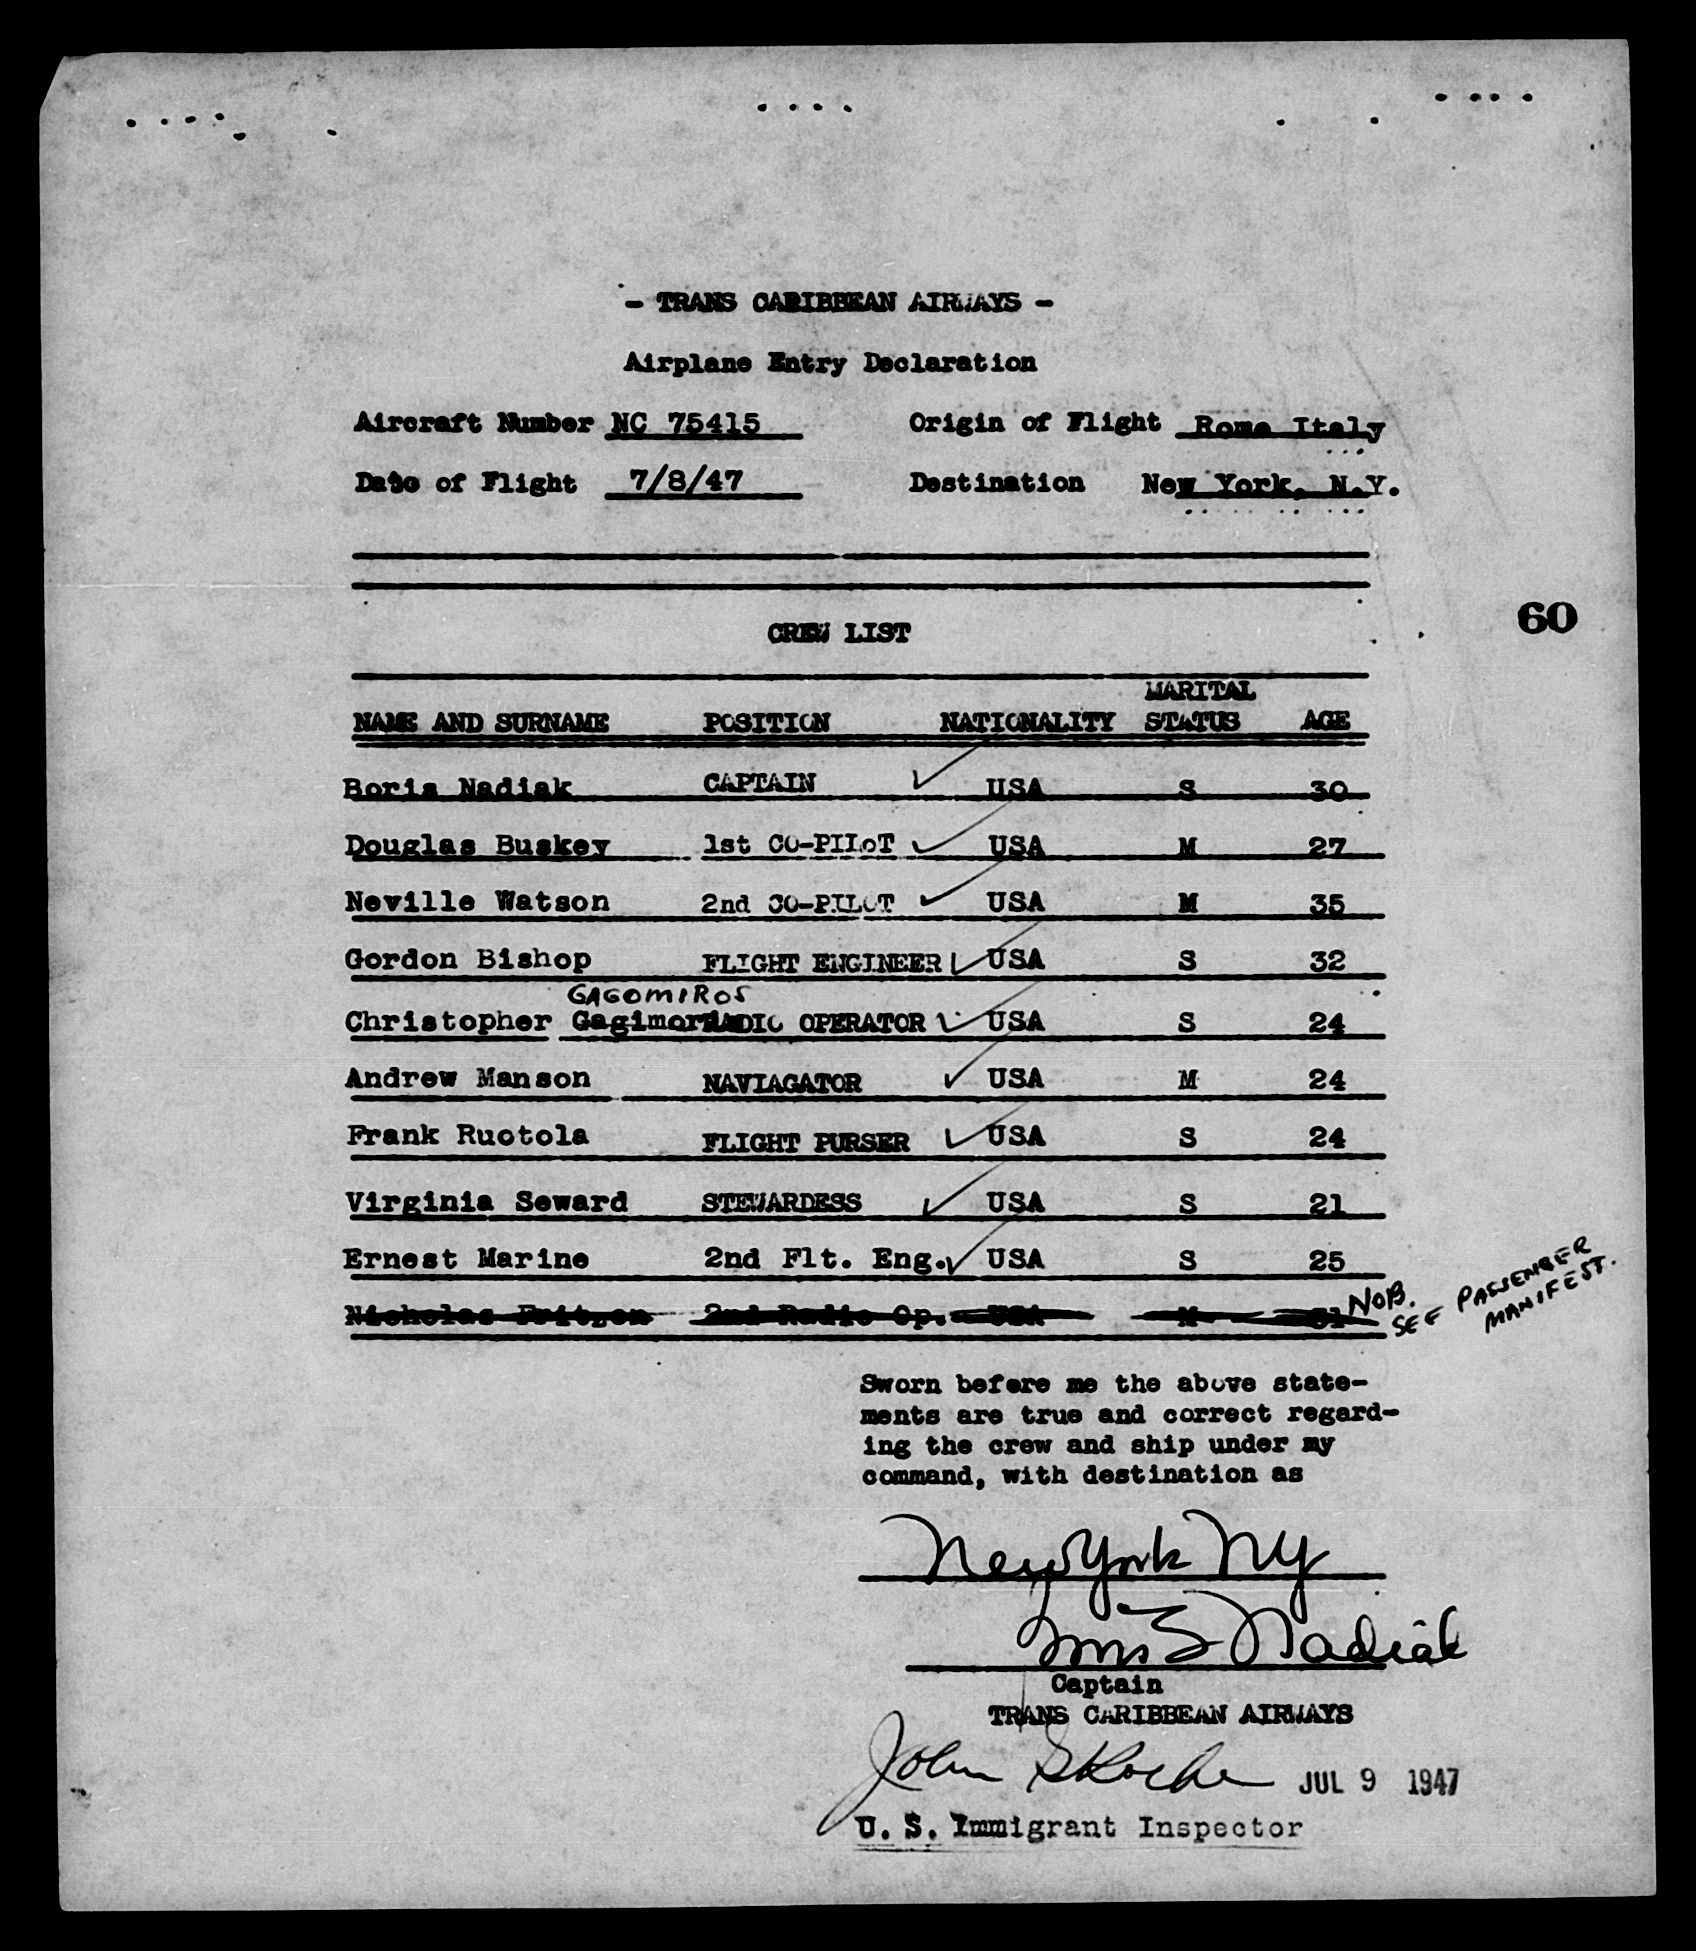 - TRANS CARIBBEAN AIRWAYS -
Airplane Entry Declaration
Aircraft Number NC 75415 Origin of Flight Rome Italy
Date of Flight 7/8/47 Destination New York, N.Y.
60
CREW LIST
MARITAL
NAME AND SURNAME POSITION NATIONALITY STATUS AGE
Boris Nadiak CAPTAIN USA S 30
Douglas Buskey 1st CO-PILOT USA M 27
Neville Watson 2nd CO-PILOT USA M 35
Gordon Bishop FLIGHT ENGINEER USA S 32
GAGOMIROS
Christopher RADIO OPERATOR USA S 24
Andrew Manson NAVIAGATOR USA M 24
Frank Ruotola FLIGHT PURSER USA S 24
Virginia Seward STEWARDESS USA S 21
Ernest Marine 2nd Flt. Eng. USA S 25
Nicholas 2nd Radio Op. USA M 31 NOB.
SEE PASSENGER
MANIFEST.
Sworn before me the above state-
ments are true and correct regard-
ing the crew and ship under my
command, with destination as
New York NY
Nadiak
Captain
TRANS CARIBBEAN AIRWAYS
John JUL 9 1947
U. S. Immigrant Inspector